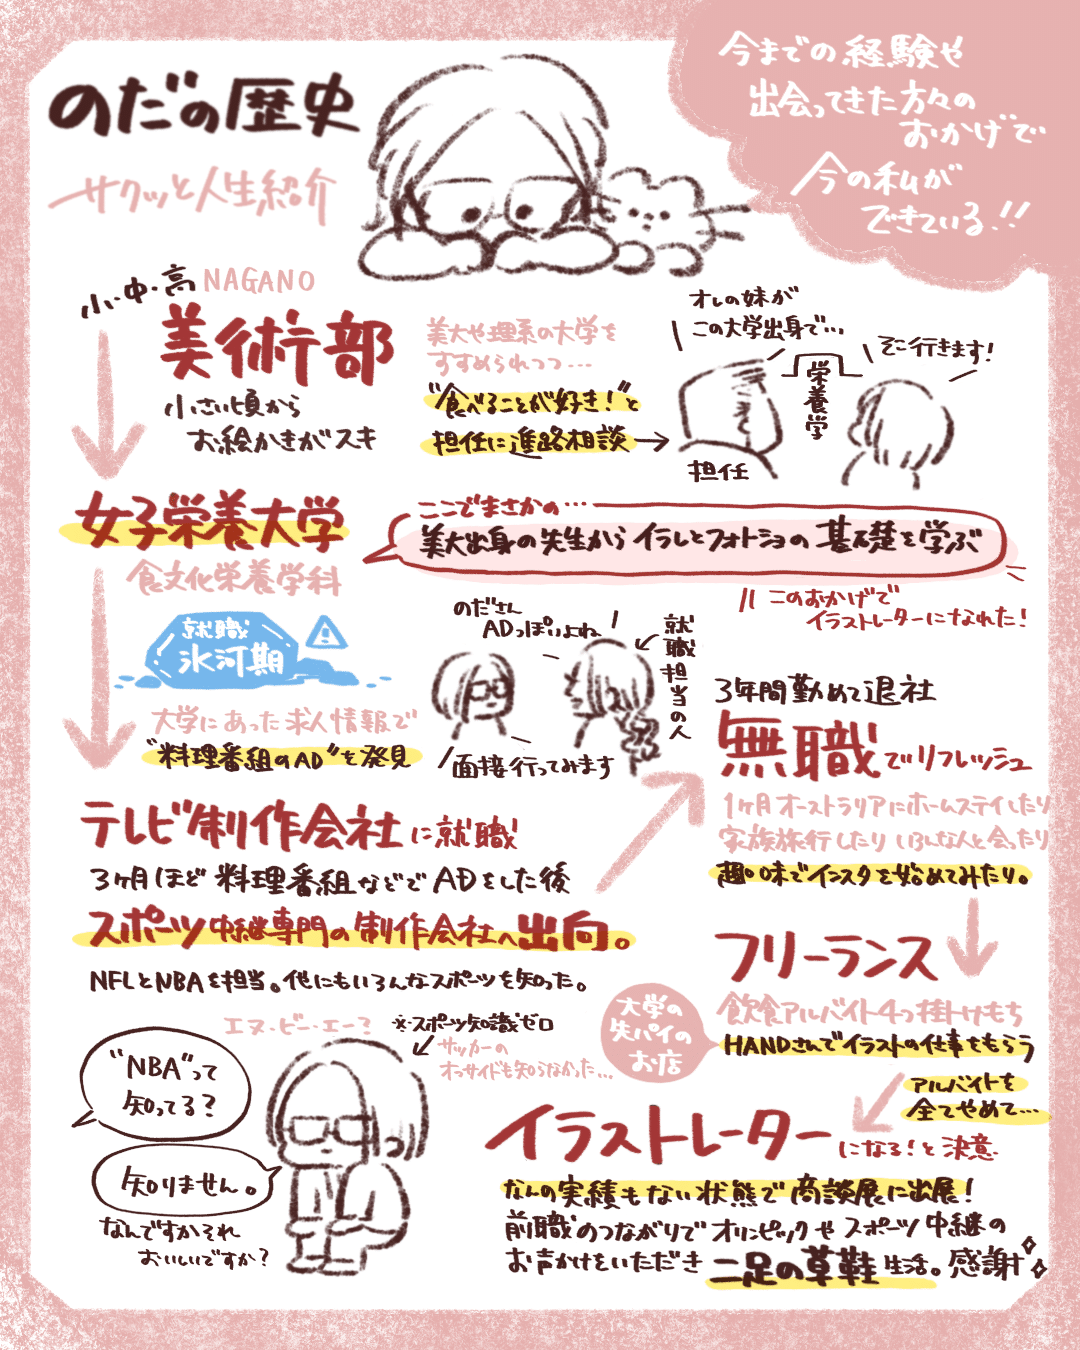 のだの歴史
サクッと人生紹介
今までの経験や
出会ってきた方々の
おかげで
今の私が
できている!!
小・中・高 NAGANO
美術部
小さい頃から
お絵かきがスキ
美大や理系の大学を
すすめられつつ…
"食べることが好き!"と
担任に進路相談
オレの妹が
この大学出身で…
栄養学
そこ行きます!
担任
女子栄養大学
食文化栄養学科
ここでまさかの…
美大出身の先生からイラレとフォトショの基礎を学ぶ
このおかげで
イラストレーターになれた!
就職
氷河期
大学にあった求人情報で
"料理番組のAD"を発見
のださん
ADっぽいよね
就職担当の人
面接行ってみます
テレビ制作会社に就職
3ヶ月ほど料理番組などでADをした後
スポーツ中継専門の制作会社へ出向。
NFLとNBAを担当。他にもいろんなスポーツを知った。
エヌ・ビー・エー?
※スポーツ知識ゼロ
サッカーの
オフサイドも知らなかった…
"NBA"って
知ってる?
知りません。
なんですかそれ
おいしいですか?
3年間勤めて退社
無職でリフレッシュ
1ヶ月オーストラリアにホームステイしたり
家族旅行したりいろんな人と会ったり
趣味でインスタを始めてみたり。
フリーランス
飲食アルバイト4つ掛けもち
大学の
先パイの
お店
HANDさんでイラストの仕事をもらう
アルバイトを
全てやめて…
イラストレーターになる!と決意
なんの実績もない状態で商談展に出展!
前職のつながりでオリンピックやスポーツ中継の
お声かけをいただき二足の草鞋生活。感謝